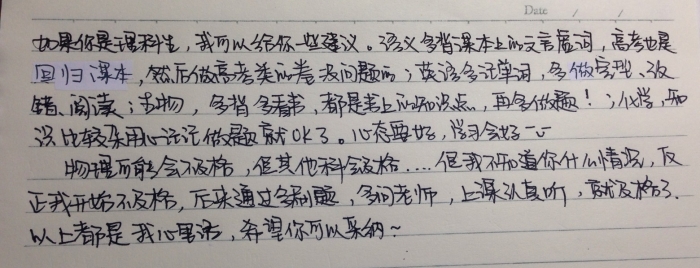 Date / /
如果你是理科生，我可以给你一些建议。语文多背课本上的文言虚词，高考也是
回归课本，然后做高考类的卷没问题的；英语多记单词，多做完型、改
错、阅读；生物，多背多看书，都是书上的知识点，再多做题！；化学，知
识比较杂用心记记做题就OK了。心态要好，学习会好
物理可能会不及格，但其他科会及格....但我不知道你什么情况，反
正我开始不及格，后来通过多刷题，多问老师，上课认真听，就及格了.
以上都是我心里话，希望你可以采纳~